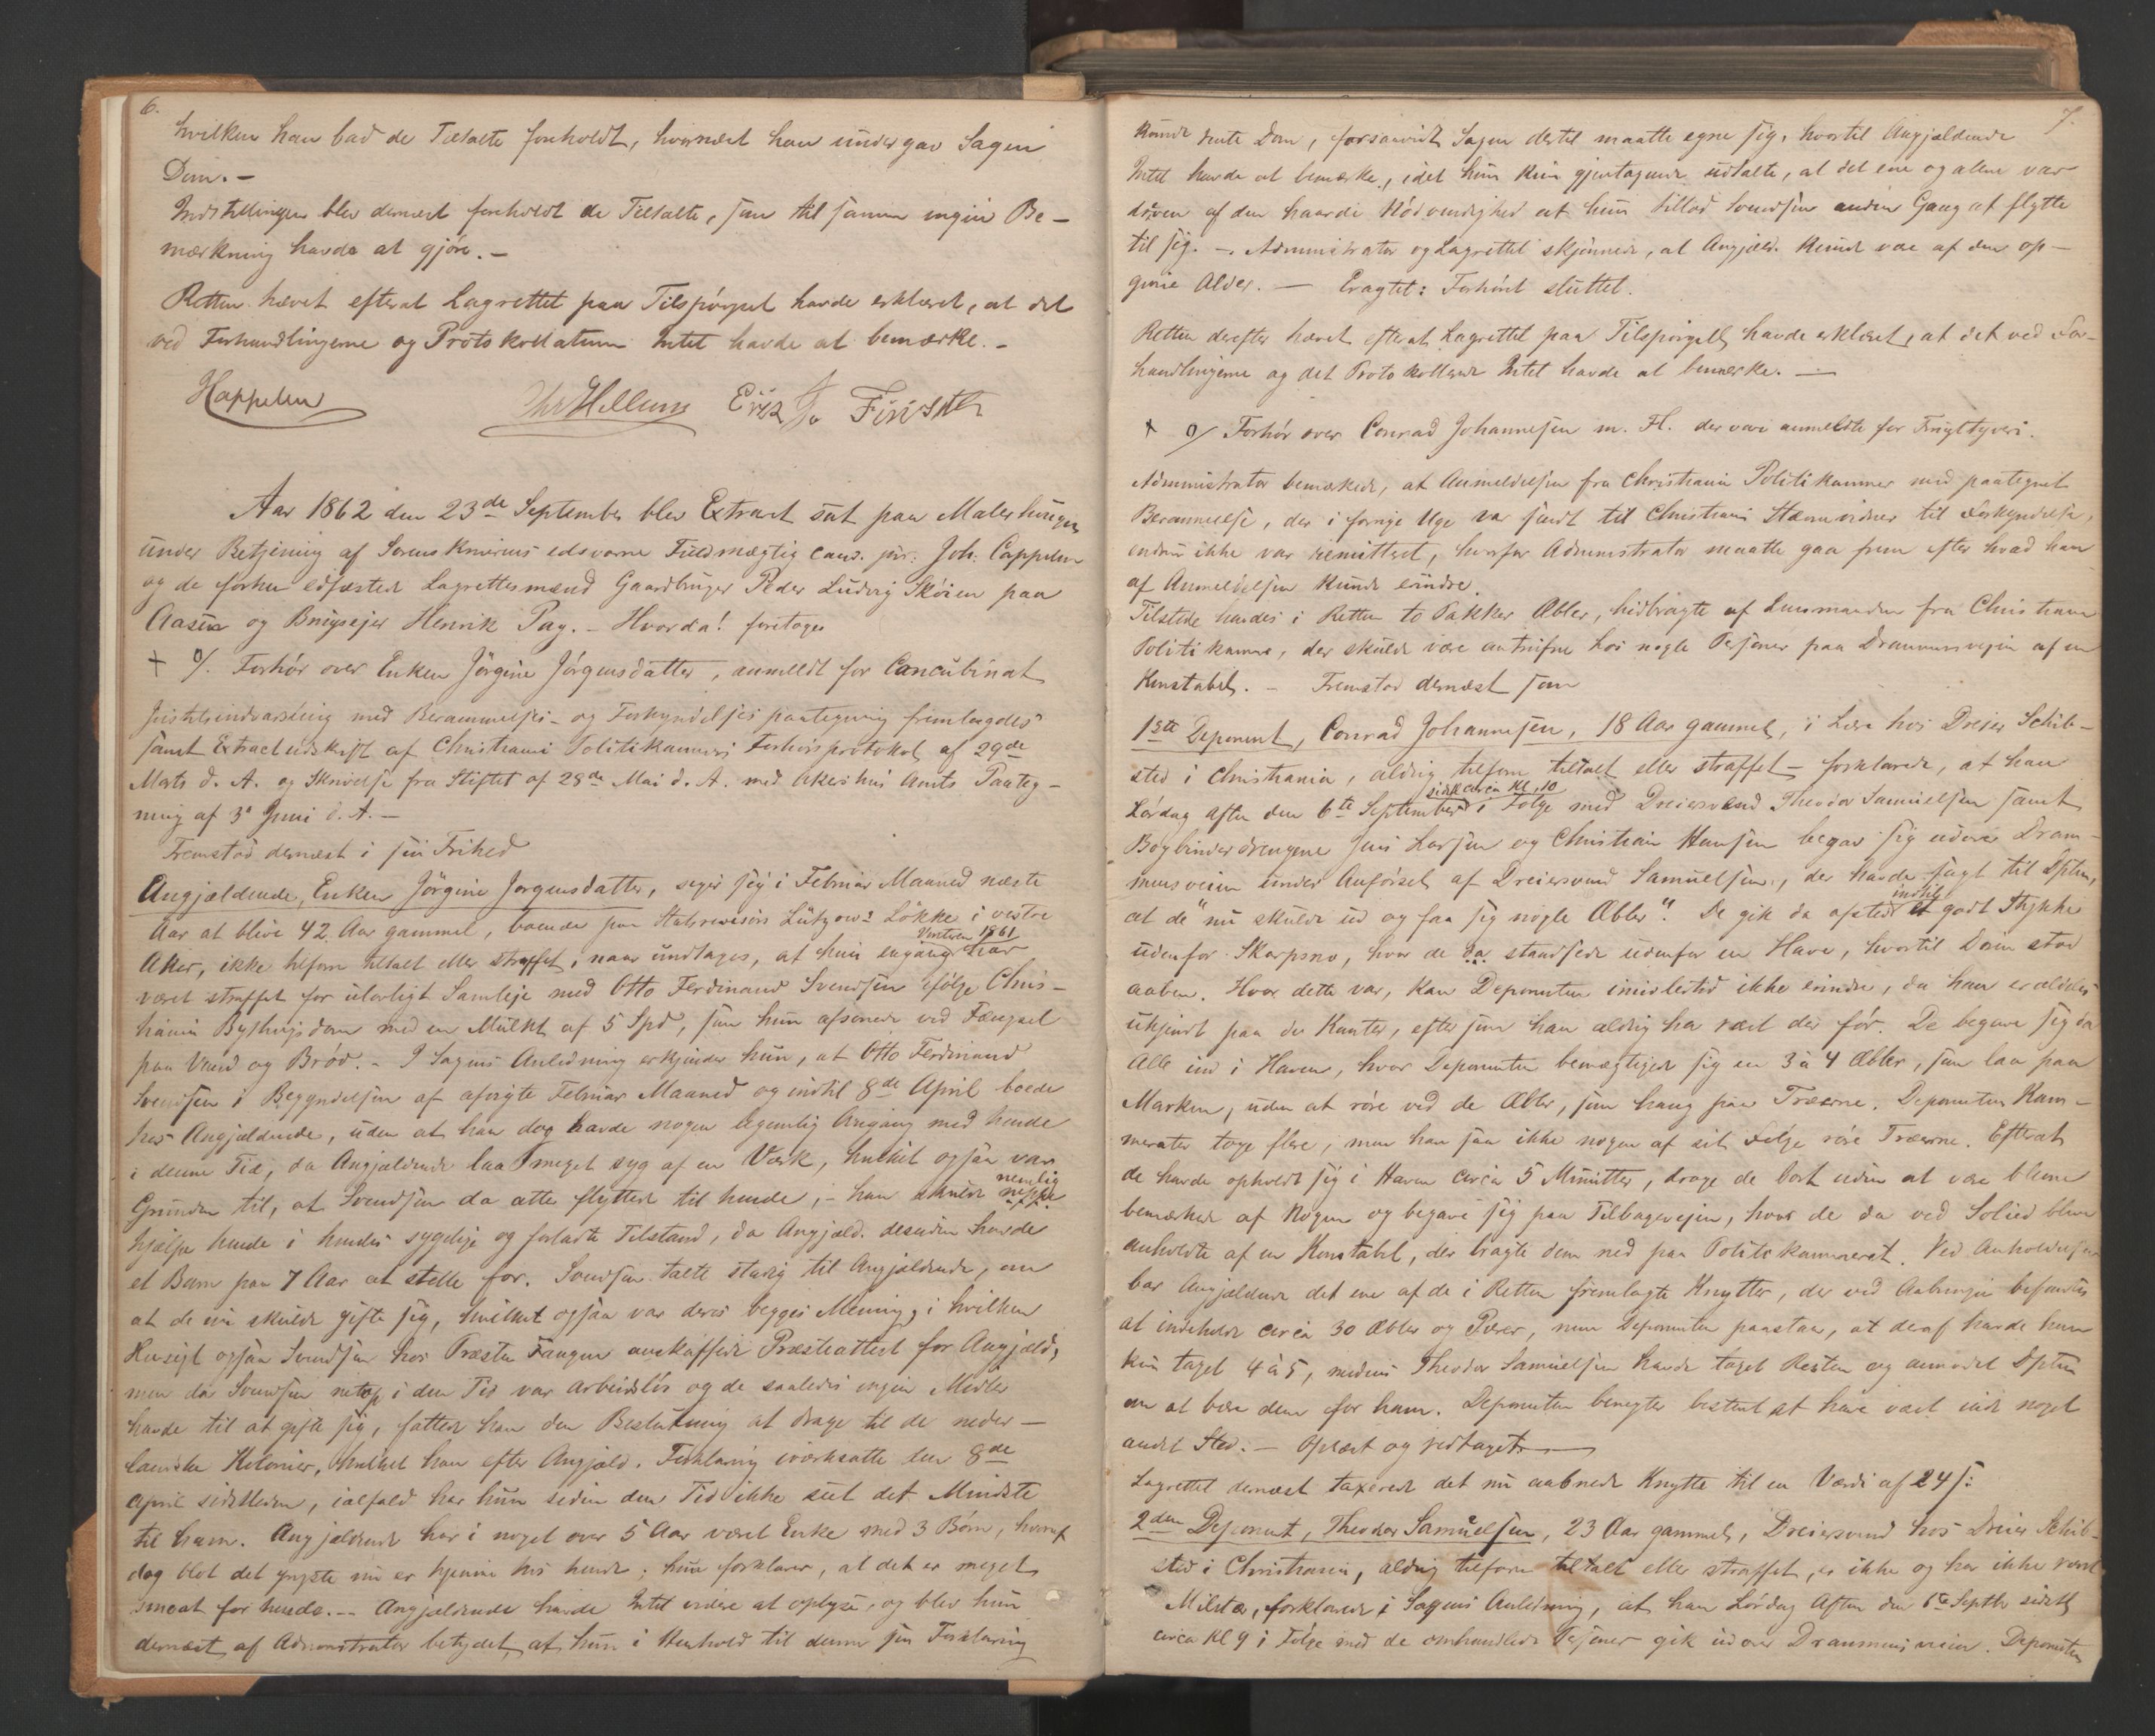 6.
hvilken han bad de Tiltalte foreholdt, hvornæst han undergav Sagen
Dom. -
Indstillingen blev dernæst foreholdt de Tiltalte, som til samme ingen Be-
mærkning havde at gjöre. -
Retten hævet efterat Lagrettet paa Tilspörgsel havde erklæret, at det
ved Forhandlingerne og Protokollationen Intet havde at bemærke. -
Cappelen Chr Hellum Erik
Aar 1862 den 23de September blev Extraret sat paa Malerhaugen
under Betjening af Sorenskriverens edsvorne Fuldmægtig cand. jur. Joh. Cappelen
og de forhen edfæstede Lagrettesmænd Gaardbruger Peder Ludvig Sköien paa
Aasen og Brugsejer Henrik Pay. - Hvorda! foretoges
+ o/. Forhör over Enken Jörgine Jörgensdatter, anmeldt for Concubinat
med Berammelses- og Forkyndelses paategning fremlagdes
samt Extractudskrift af Christiania Politikammers Forhörsprotokol af 29de
Marts d. A. og Skrivelse fra Stiftet af 28de Mai d. A. med Akershus Amts Paateg-
ning af 3' Juni d. A. -
Fremstod dernæst i sin Frihed
Angjældende, Enken Jörgine Jörgensdatter, siger sig i Februar Maaned næste
Aar at blive 42 Aar gammel, boende paa Lützows Lökke i vestre
Aker, ikke tilforn tiltalt eller straffet, naar undtages, at hun engang Vinteren 1861 har
været straffet for ulovligt Samleje med Otto Ferdinand Svendsen ifölge Chris-
tiania Bythings dom med en Mulkt af 5 Spd, som hun afsonede ved Fængsel
paa Vand og Bröd. - I Sagens Anledning erkjender hun, at Otto Ferdinand
Svendsen i Begyndelsen af afvigte Februar Maaned og indtil 8de April boede
hos Angjældende, uden at han dog havde nogen legemlig Omgang med hende
i denne Tid, da Angjældende laa meget syg af en Værk, hvilket ogsaa var
Grunden til, at Svendsen da atter flyttede til hende, - han skulde nemlig
hjælpe hende i hendes sygelige og forladte Tilstand, da Angjæld. desuden havde
et Barn paa 7 Aar at stelle for. Svendsen talte stadig til Angjældende, om
at de nu skulde gifte sig, hvilket ogsaa var deres begges Mening, i hvilken
Hensigt ogsaa Svendsen hos Præsten Faugen anskaffede Præsteattest for Angjæld,
men da Svendsen netop i den Tid var arbeidslös og de saaledes ingen Midler
havde til at gifte sig, fattede han den Beslutning at drage til de neder-
landske Kolonier, hvilket han efter Angjæld. Forklaring iværksatte den 8de
April sidstleden, ialfald har hun siden den Tid ikke seet det Mindste
til ham. Angjældende har i noget over 5 Aar været Enke med 3 Börn, hvoraf
dog blot det yngste nu er hjemme hos hende; hun forklarer, at det er meget
smaat for hende. -- Angjældende havde Intet videre at oplyse, og blev hun
dernæst af Administrator betydet, at hun i Henhold til denne sin Forklaring
7.
kunde vente Dom, forsaavidt Sagen dertil maatte egne sig, hvortil Angjældende
Intet havde at bemærke, idet hun kun gjentagende udtalte, at det ene og alene var
dreven af den haarde Nödvendighed at hun tillod Svendsen anden Gang at flytte
til sig. -. Administrator og Lagrettet skjönnede, at Angjæld. kunde være af den op-
givne Alder. — Eragtet: Forhöret sluttet.
Retten derefter hævet efterat Lagrettet paa Tilspörgsel havde erklæret, at det ved For-
handlingerne og det Protokollerede Intet havde at bemærke. —
+ o/ Forhör over Conrad Johannesen m. Fl. der vare anmeldte for Frugttyveri.
Administrator bemærkede, at Anmeldelsen fra Christiania Politikammer med paategnet
Berammelse, der i forrige Uge var sendt til Christiania Stævnevidner til Forkyndelse,
endnu ikke var remitteret, hvorfor Administrator maatte gaa frem efter hvad han
af Anmeldelsen kunde erindre.
Tilstede havdes i Retten to Pakker Æbler, hidbragte af Lensmanden fra Christiania
Politikammer, der skulde være antrufne hos nogle Personer paa Drammensvejen af en
Konstabel. - Fremstod dernæst som
1ste Deponent, Conrad Johannesen, 18 Aar gammel, i Lære hos Dreier Schib-
sted i Christiania, aldrig tilforn tiltalt eller straffet - forklarede, at han
Lördag Aften den 6te September sidstl circa Kl. 10 i Fölge med Dreiersvend Theodor Samuelsen samt
Bogbinderdrengene Jens Larsen og Christian Hansen begav sig udover Dram-
mensveien under Anförsel af Dreiersvend Samuelsen, der havde sagt til Dptn,
at de "nu skulde ud og faa sig nogle Æbler". De gik da afsted indtil et godt Stykke
udenfor Skarpsno, hvor de da standsede udenfor en Have, hvortil Dören stod
aaben. Hvor dette var, kan Deponenten imidlertid ikke erindre, da han er aldeles
ukjendt paa de Kanter, eftersom han aldrig har været der för. De begave sig da
Alle ind i Haven, hvor Deponenten bemægtigede sig en 3 à 4 Æbler, som laa paa
Marken, uden at röre ved de Æbler, som hang paa Træerne. Deponentens Kam-
merater toge flere, men han saa ikke nogen af sit Fölge röre Træerne. Efterat
de havde opholdt sig i Haven circa 5 Minutter, droge de bort uden at være blevne
bemærkede af Nogen og begave sig paa Tilbagevejen, hvor de da ved Solied bleve
anholdte af en Konstabel, der bragte dem ned paa Politikammeret. Ved Anholdelsen
bar Angjældende det ene af de i Retten fremlagte Knytter, der ved Aabningen befandtes
at indeholde circa 30 Æbler og Pærer, men Deponenten paastaar, at deraf havde han
kun taget 4 à 5, medens Theodor Samuelsen havde taget Resten og anmodet Dptn
om at bære dem for ham. Deponenten benegter bestemt at have været inde noget
andet Sted. - Oplæst og vedtaget. —
Lagrettet dernæst taxerede det nu aabnede Knytte til en Værdi af 24 s:
2den Deponent, Theodor Samuelsen, 23 Aar gammel, Dreiersvend hos Dreier Schib-
sted i Christiania, aldrig tilforn tiltalt eller straffet, er ikke og har ikke været
Militær, forklarede i Sagens Anledning, at han Lördag Aften den 6te Septbr sidstl
circa Kl 9 i Fölge med de omhandlede Personer gik udover Drammensveien. Deponenten